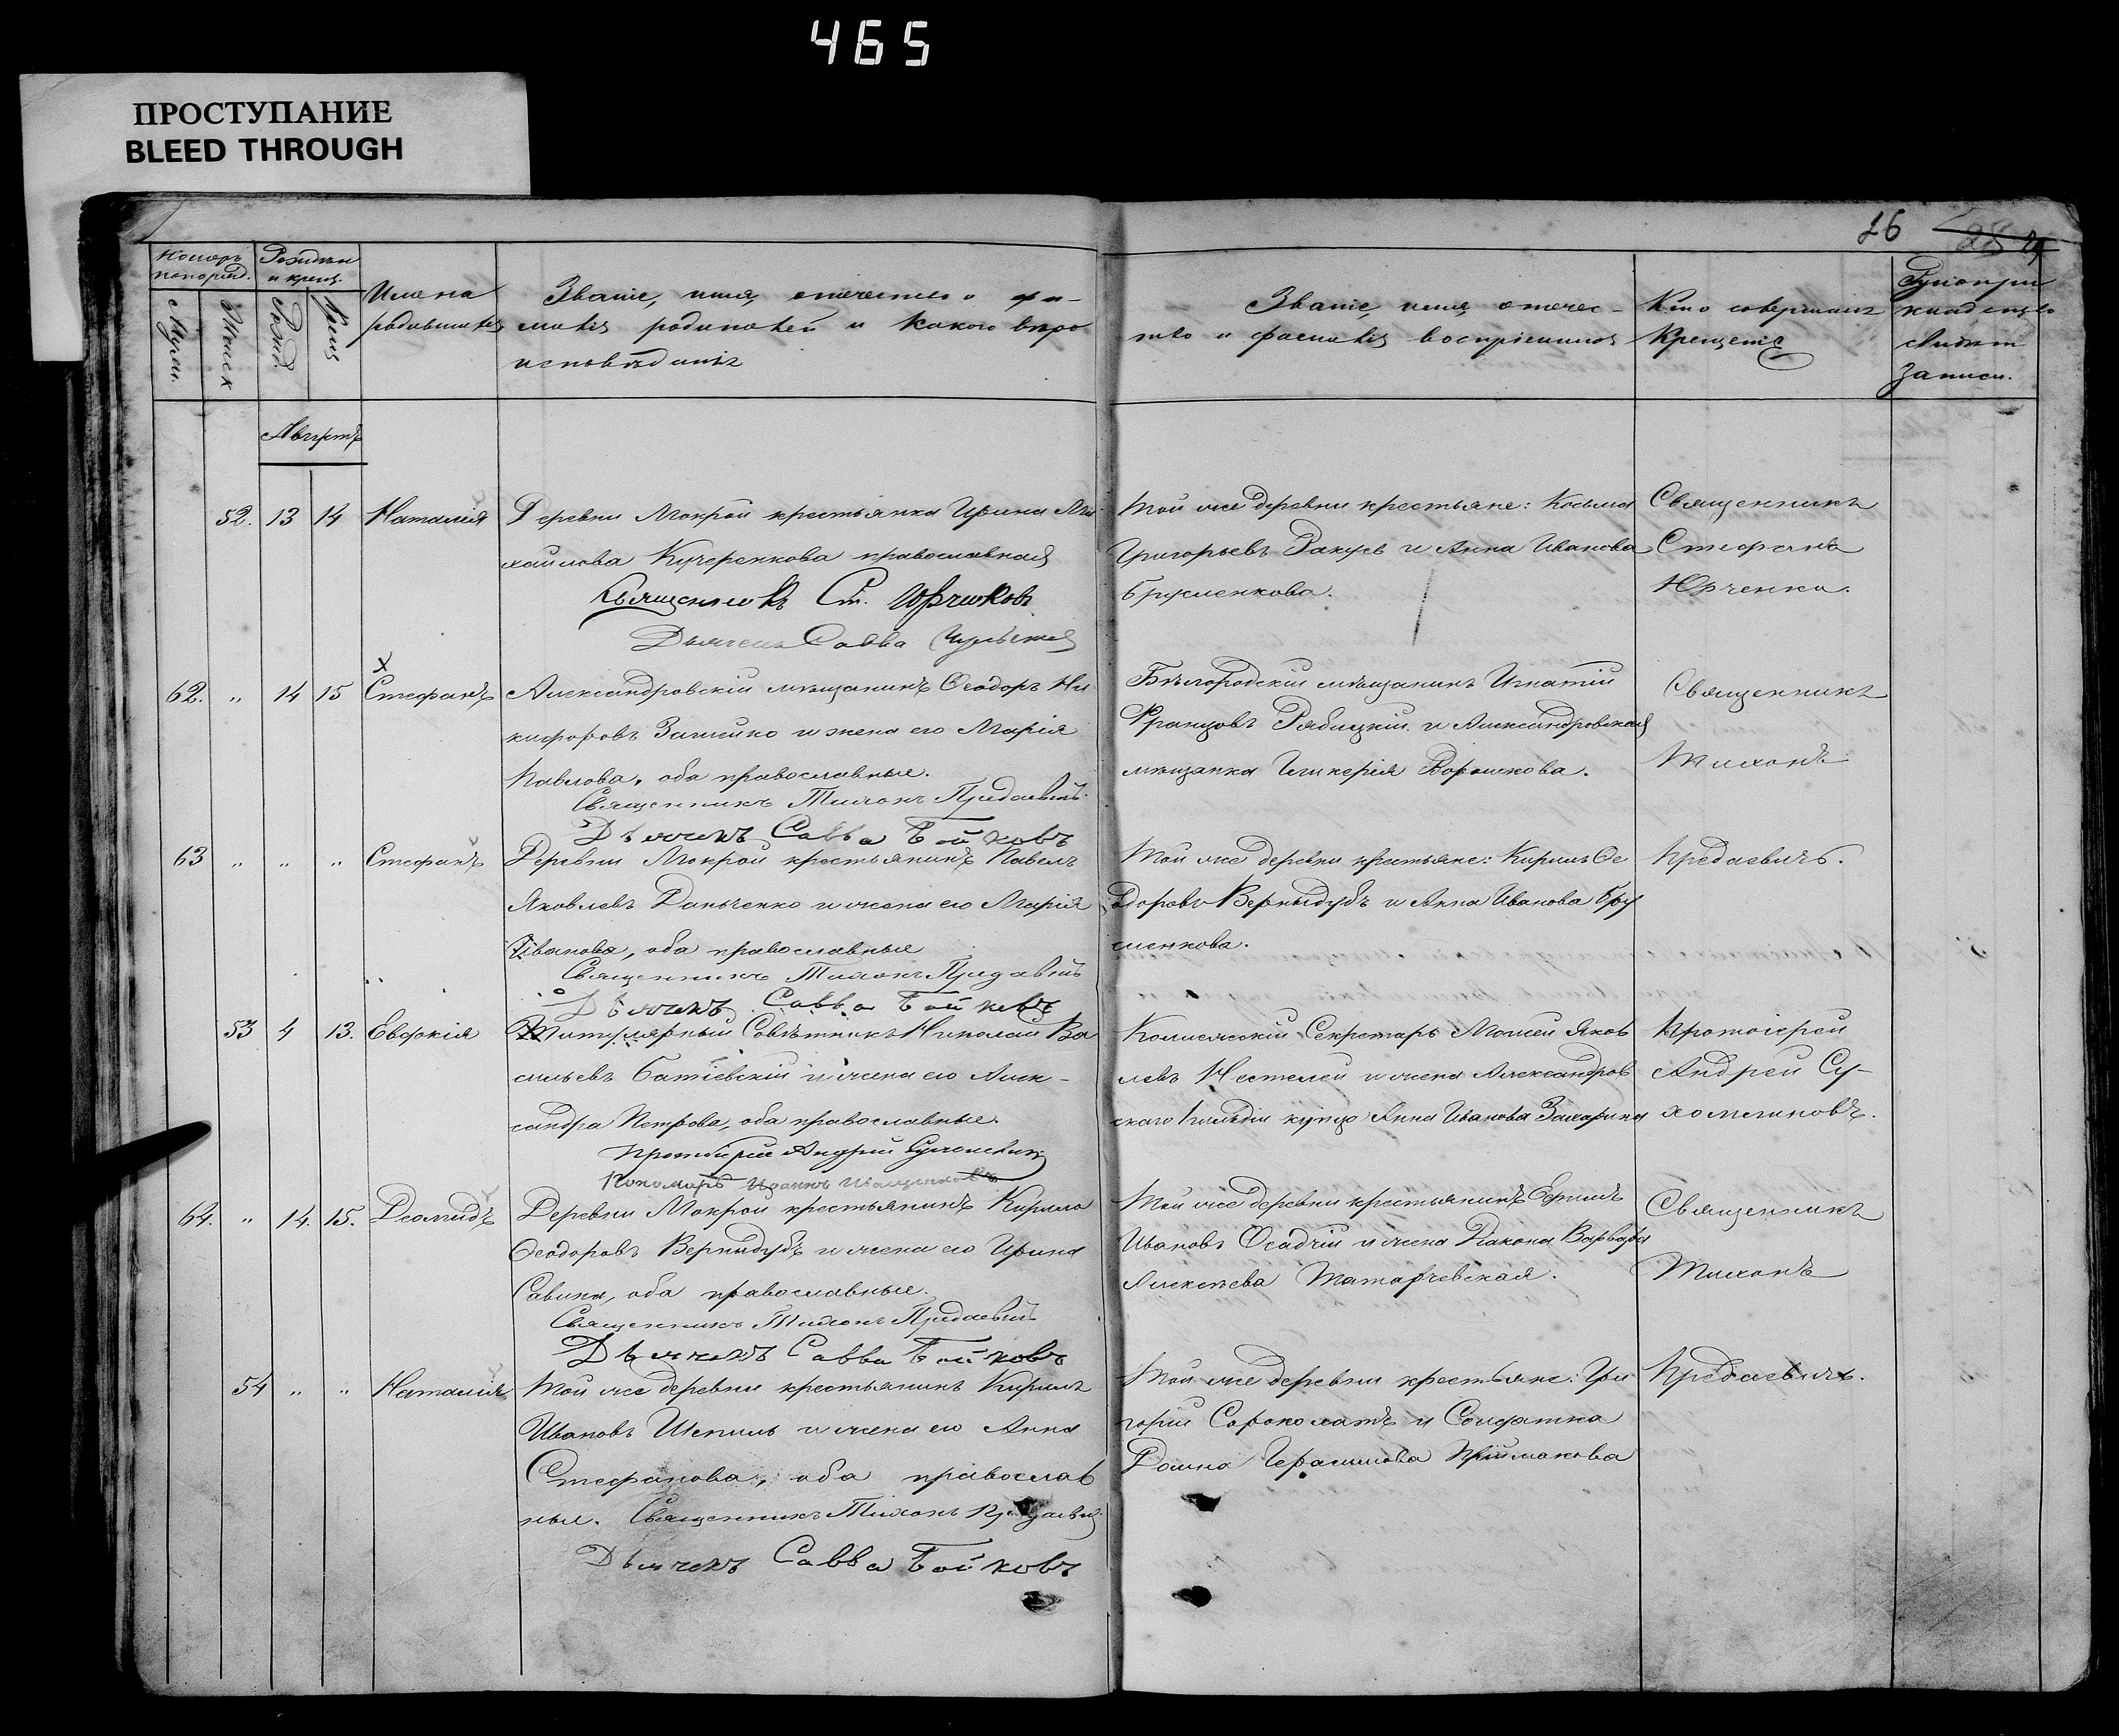 465
ПРОСТУПАНИЕ
BLEED THROUGH
26
Номеръ
попоряд.
Муж.
Женск
Рожденія
и крещ.
Рожд.
Крещ.
Имена
родившихся
Званіе, имя, отчество и фа-
милія родителей и какого вѣро
исповѣданія
Званіе, имя отчес-
тво и фамилія воспріемниковъ
Кто совершалъ
Крещеніе
записи.
Августъ
52. 13 14 Наталія
Деревни Мокрой крестьянка Ирина Ми
хайлова Кучеренкова православная
Священникъ Ст. Юрченковъ
Дьячекъ Савва
Той же деревни крестьяне: Косьма
Григорьевъ Ракусъ и Анна Иванова
Брусменкова.
Священникъ
Стефанъ
Юрченко.
62. „ 14 15 Стефанъ
Александровскій мѣщанинъ Ѳеодоръ Ни
кифоровъ Зашейко и жена его Марія
Павлова, оба православные.
Священникъ Тихонъ Предаевичъ
Дьячекъ Савва Бойковъ
Бѣлородскій мѣщанинъ Игнатій
Францовъ Рябицкій и Александровская
мѣщанка Гликерія Ворошкова.
Священникъ
Тихонъ
63 „ „ „ Стефанъ
Деревни Мокрой крестьянинъ Павелъ
Яковлевъ Данченко и жена его Марія
Иванова, оба православные
Священникъ Тихонъ Предаевичъ
Дьячекъ Савва Бойковъ
Той же деревни крестьяне: Кирилъ Ѳе
одоровъ Вернидубъ и Анна Иванова Бру
сменкова.
Предаевичъ.
53 4 13. Евфокія
Титулярный Совѣтникъ Николай Ва
сильевъ Батіевскій и жена его Алек-
сандра Петрова, оба православные.
Протоіерей Андрей
Пономарь Иоаннъ
Колежскій Секретарь Моисей Яков
левъ Нестелей и жена Александров
скаго гильдіи купца Анна Иванова Захарина
Протоіерей
Андрей Су-
хомлиновъ.
64. „ 14. 15. Деомидъ
Деревни Мокрой крестьянинъ Кирило
Ѳеодоровъ Вернидубъ и жена его Ирина
Савина, оба православные.
Священникъ Тихонъ Предаевичъ
Дьячекъ Савва Бойковъ
Той же деревни крестьянинъ Ефимъ
Ивановъ Осадчій и жена Діакона Варвара
Алексѣева Татарчевская.
Священникъ
Тихонъ
54 „ „ Наталія
Той же деревни крестьянинъ Кирилъ
Ивановъ Шепиль и жена его Анна
Стефанова, оба православ
ные. Священникъ Тихонъ Предаевичъ
Дьячекъ Савва Бойковъ
Той же деревни крестьяне: Гри
горій Сороколатъ и Солдатка
Домна Герасимова Приймакова
Предаевичъ.